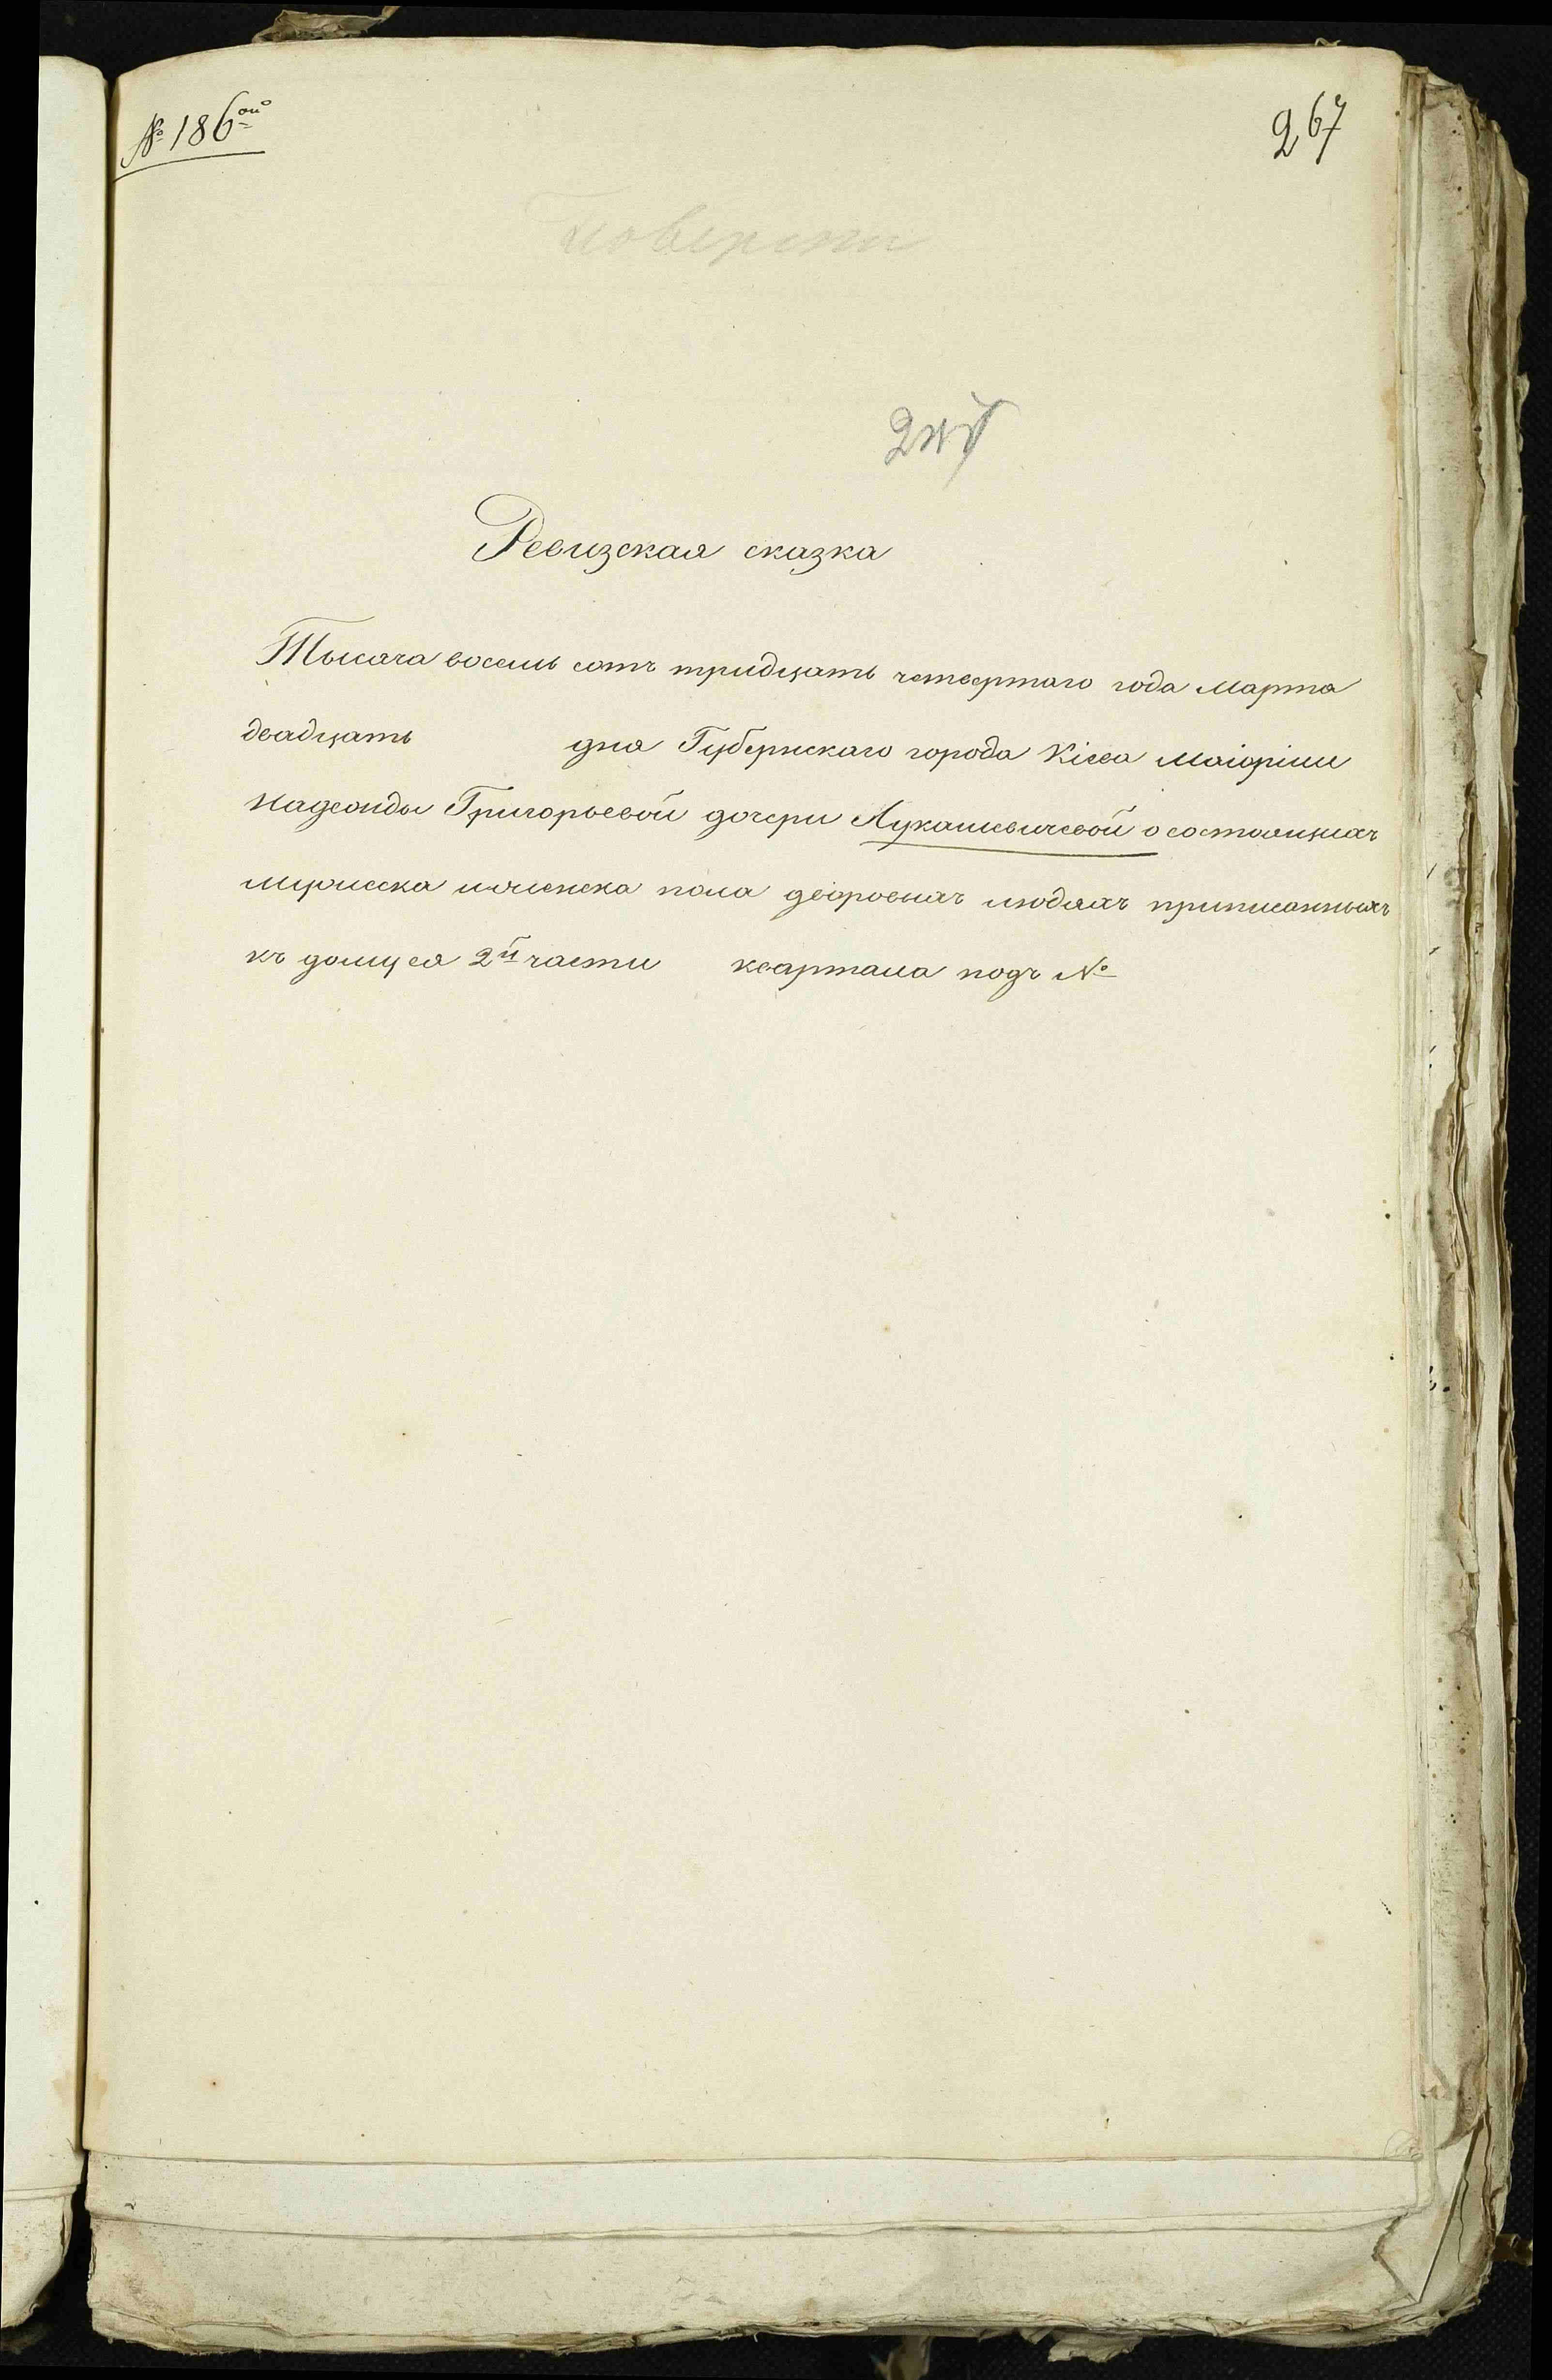 № 186ой
267
Ревизская сказка
Тысяча восемь сотъ тридцать четвертаго года Марта
двадцать дня Губернскаго города Кіева Маіорши
Надежды Григорьевой дочери Лукашевичевой о состоящихъ
мужеска и женска пола дворовыхъ людяхъ приписанныхъ
къ дому ея 2й части квартала подъ №